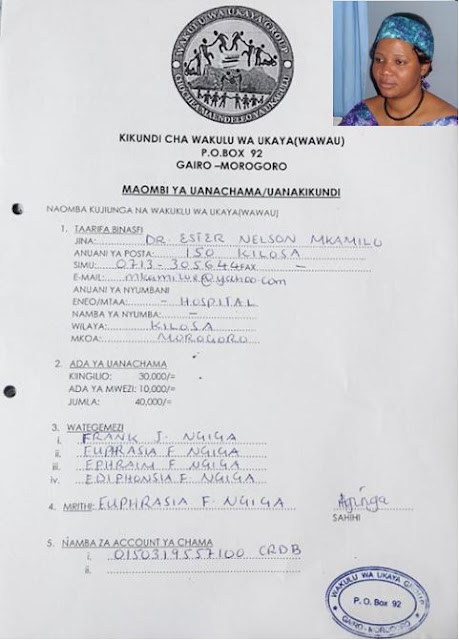 WAKULU WA UKAYA GROUP
KIKUNDI CHA WAKULU WA UKAYA(WAWAU)
P.O.BOX 92
GAIRO –MOROGORO
MAOMBI YA UANACHAMA/UANAKIKUNDI
NAOMBA KUJIUNGA NA WAKUKLU WA UKAYA(WAWAU)
1. TAARIFA BINASFI
JINA: DR. ESTER NELSON MKAMILU
ANUANI YA POSTA: 150 KILOSA
SIMU: 0713-305644 FAX –
E-MAIL: @yahoo.com
ANUANI YA NYUMBANI
ENEO/MTAA: – HOSPITAL
NAMBA YA NYUMBA: –
WILAYA: KILOSA
MKOA: MOROGORO
2. ADA YA UANACHAMA
KIINGILIO: 30,000/=
ADA YA MWEZI: 10,000/=
JUMLA: 40,000/=
3. WATEGEMEZI
i. FRANK J. NGIGA
ii. EUPHRASIA F NGIGA
iii. EPHRAIM F NGIGA
iv. EDIPHONSIA F. NGIGA
4. MRITHI: EUPHRASIA F. NGIGA
SAHIHI
5. NAMBA ZA ACCOUNT YA CHAMA
i. 0150319557100 CRDB
ii.
WAKULU WA UKAYA GROUP
P. O. Box 92
GAIRO-MOROGORO